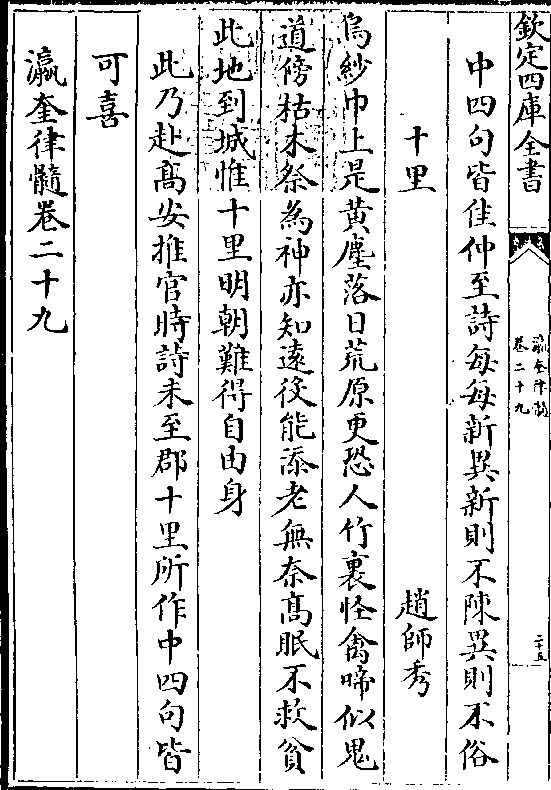 欽定四庫全書
瀛奎律髓
卷二十九
二十五
中四句皆佳仲至詩每每新異新則不陳異則不俗
十里 趙師秀
烏紗巾上是黄塵落日荒原更恐人竹裏怪禽啼似鬼
道傍枯木祭為神亦知遠役能添老無奈髙眠不救貧
此地到城惟十里明朝難得自由身
此乃赴髙安推官時詩未至郡十里所作中四句皆
可喜
瀛奎律髓卷二十九